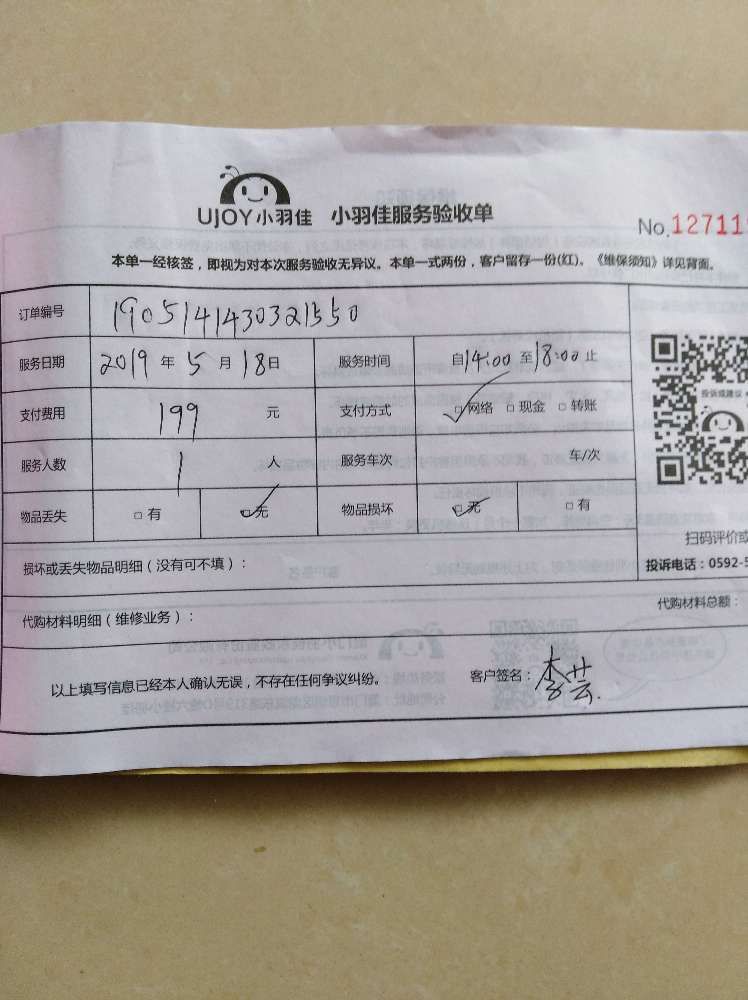 UJOY小羽佳 小羽佳服务验收单
No.12711
本单一经核签，即视为对本次服务验收无异议。本单一式两份，客户留存一份(红)。《维保须知》详见背面。
订单编号 1905141430321550
服务日期 2019 年 5 月 18 日 服务时间 自14:00 至 18:00 止
支付费用 199 元 支付方式 ☑网络 □现金 □转账
投诉或建议
服务人数 1 人 服务车次 车/次
物品丢失 □有 ☑无 物品损坏 ☑无 □有
扫码评价或
损坏或丢失物品明细（没有可不填）：
投诉电话：0592-5
代购材料明细（维修业务）： 代购材料总额：
以上填写信息已经本人确认无误，不存在任何争议纠纷。 客户签名：李芸